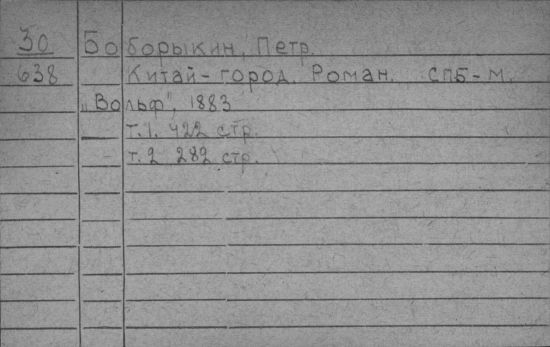 30 Боборыкин, Петр.
638 Китай-город. Роман. СПБ-М.
„Вольф", 1883
т.1. 422 стр.
т.2 282 стр.